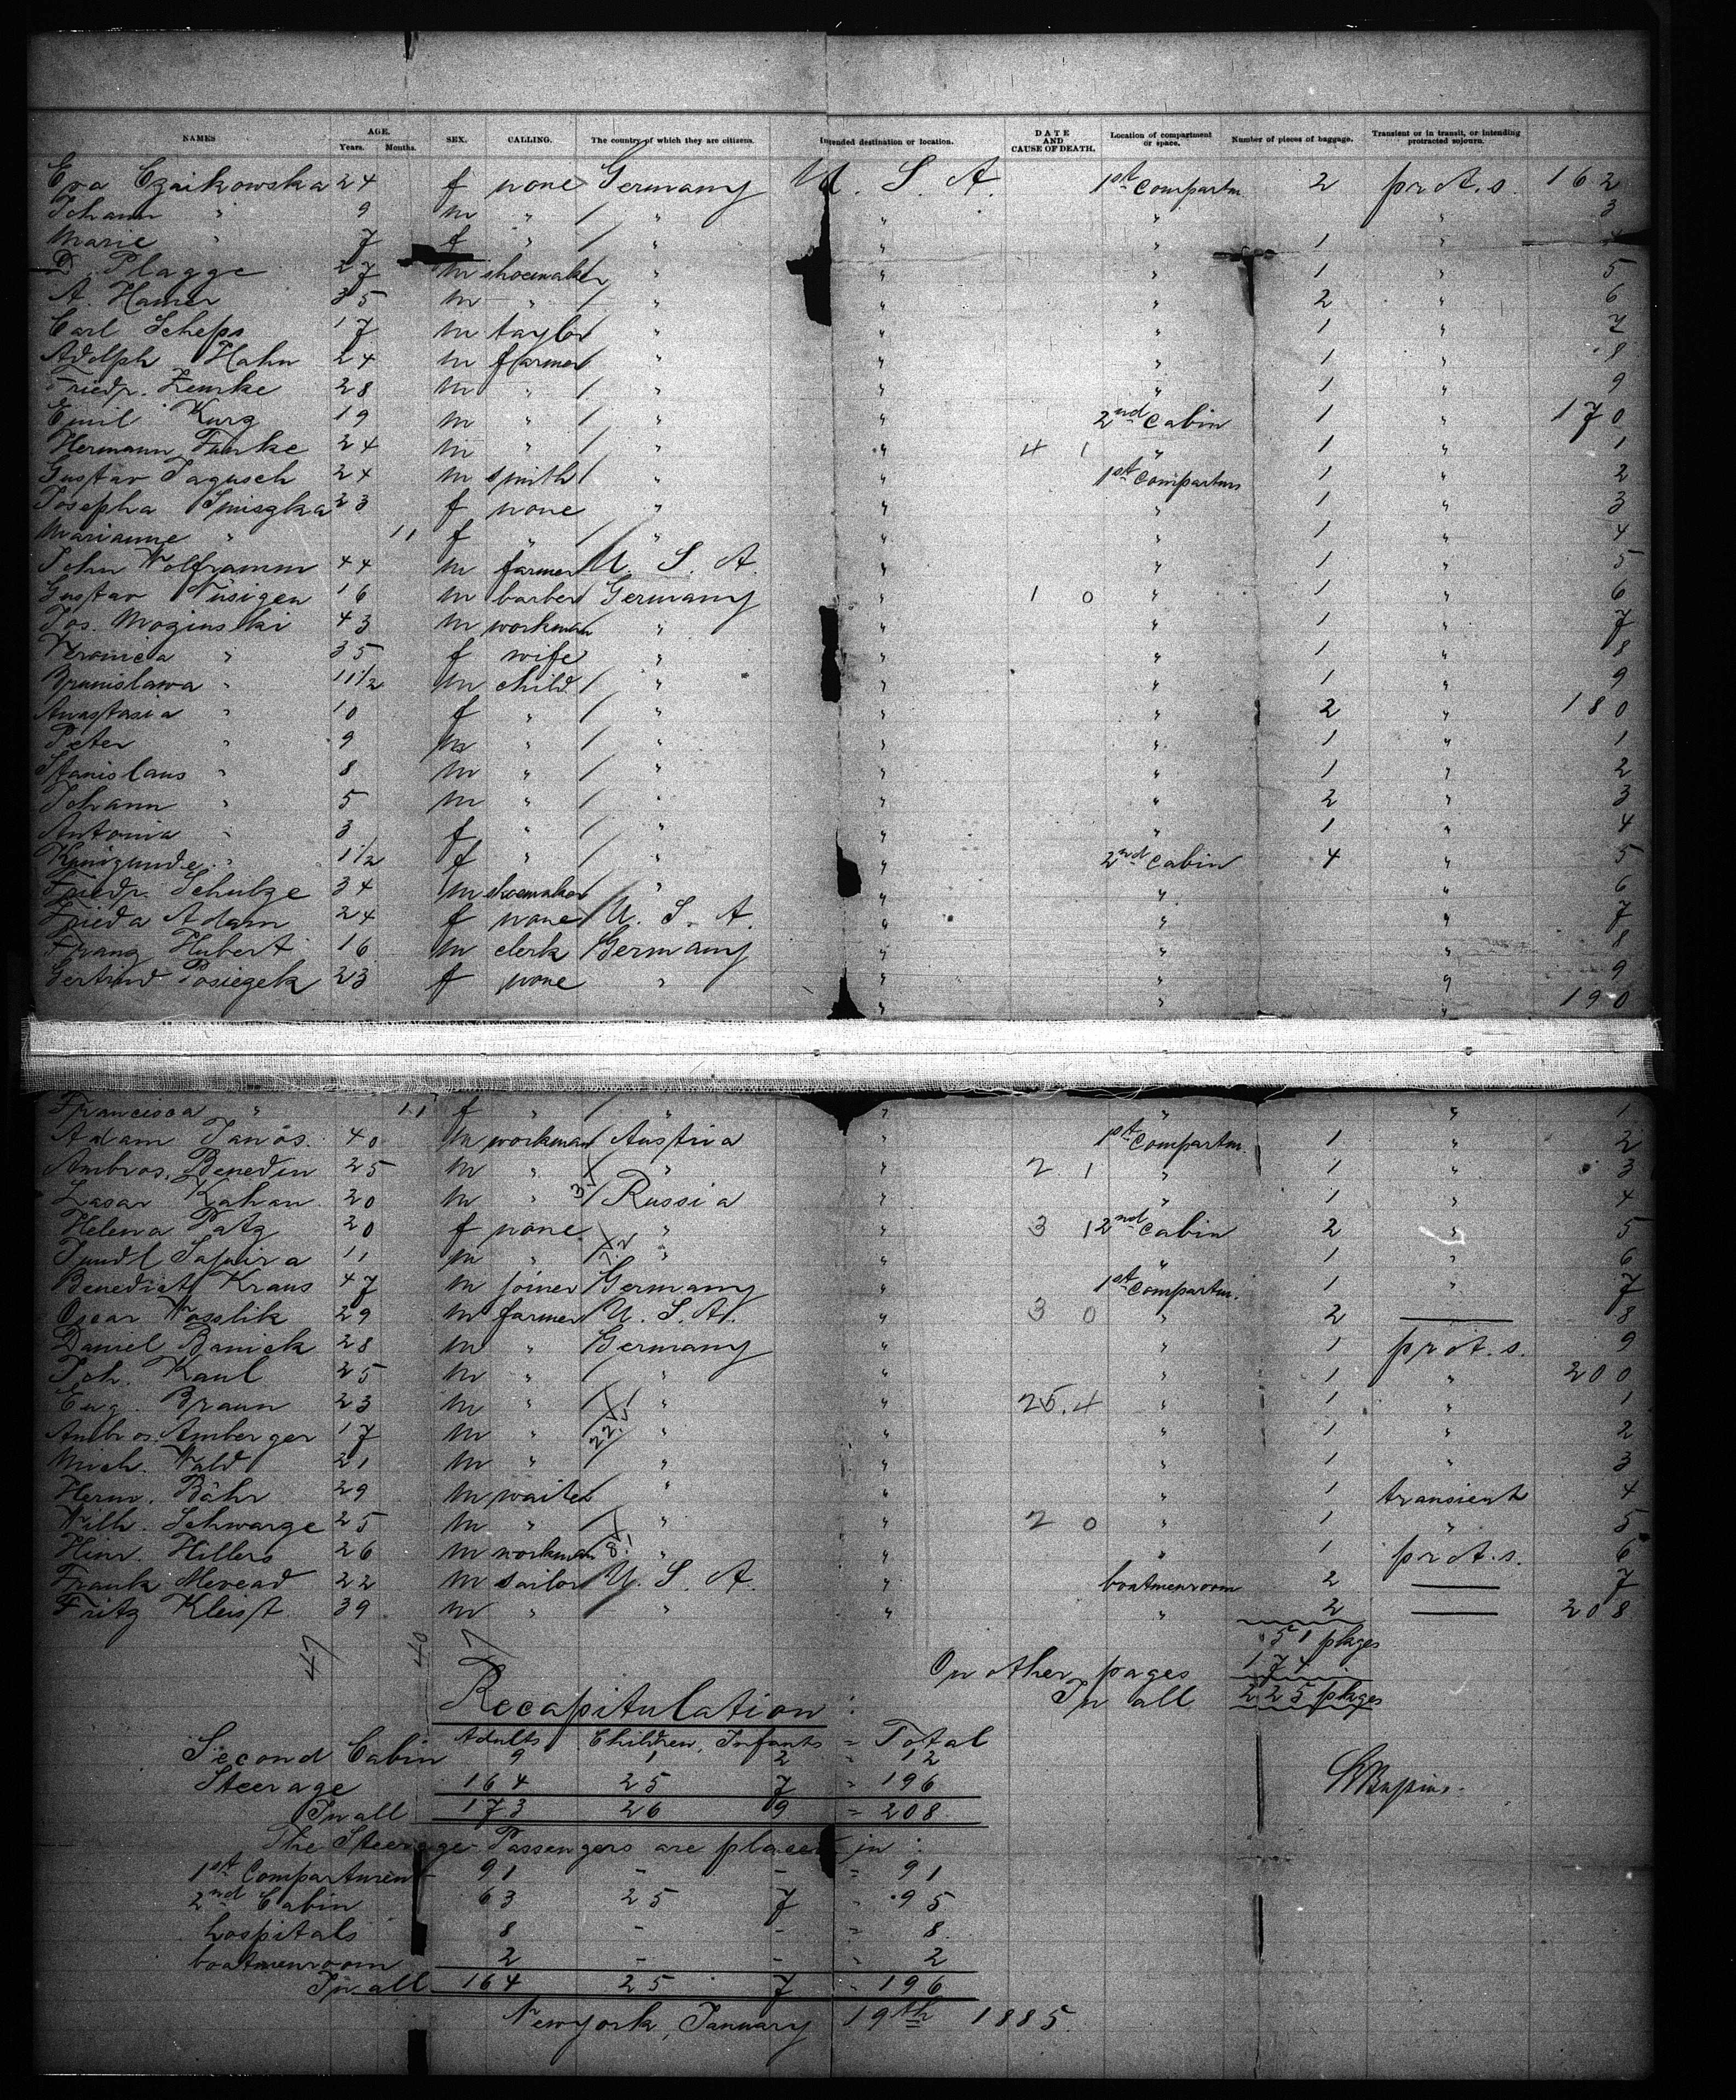 NAMES AGE. Years. Months. SEX. CALLING. The country of which they are citizens. Intended destination or location. DATE AND CAUSE OF DEATH. Location of compartment or space. Number of pieces of baggage. Transient or in transit, or intending protracted sojourn.
Eva Czaikowska 24 f none Germany U. S. A. 1st Compartm. 2 prot.s. 162
Johann " 9 m " / " " " " 3
Marie " 7 f " / " " " 1 "
D. Plagge 27 m shoemaker " " " 1 " 5
A. Hamer 35 m " / " " " 2 " 6
Carl Scheps 17 m taylor " " " 1 " 7
Adolph Hahn 24 m farmer / " " " 1 " 8
Friedr. Zemke 28 m " / " " " 1 " 9
Emil Kurz 19 m " / " " 2nd Cabin 1 " 170
Hermann Funke 24 m " / " " 4 1 " 1 " 1
Gustav Jagusch 24 m smith / " " 1st Compartm 1 " 2
Josepha Smiszka 23 f none " " " 1 " 3
Marianne " 11 f " / " " " 1 " 4
John Wolframm 44 m farmer U. S. A. " " 1 " 5
Gustav 16 m barber Germany " 1 0 " 1 " 6
Jos. Mozinski 43 m workman " " " 1 " 7
Veronica " 35 f wife " " " 1 " 8
Brunislawa " 11 1/2 m child / " " " 1 " 9
Anastasia " 10 f " / " " " 2 " 180
Peter " 9 m " / " " " 1 " 1
Stanislaus " 8 m " / " " " 1 " 2
Johann " 5 m " / " " " 2 " 3
Antonia " 3 f " / " " " 1 " 4
Kunigunde " 1 1/2 f " / " " 2nd Cabin 4 " 5
Friedr. Schulze 34 m shoemaker / " " " " 6
Frieda Adam 24 f none / U. S. A. " " " 7
Franz Hubert 16 m clerk / Germany " " " 8
Gertrud Posiezek 23 f none " " " " 9
" " " 190
Francisca " 11 f " / " " " " 1
Adam Janos. 40 m workman / Austria " 1st Compartm. 1 " 2
Ambros. Benedin 25 m " / " " 2 1 " 1 " 3
Lasar Kahan 20 m " / Russia " " 1 " 4
Helena Patz 20 f none " " 3 1 2nd Cabin 2 " 5
Sapira 11 m " " " " 1 " 6
Benedict Kraus 47 m joiner / Germany " 1st Compartm. 1 " 7
Oscar Wosslik 29 m farmer / U. S. A. " 3 0 " 2 — 8
Daniel Banick 28 m " / Germany " " 1 prot.s. 9
Joh. Kaul 25 m " / " " " 1 " 200
Eug. Braun 23 m " / " " 25.4 " 1 " 1
Ambros. Amberger 17 m " / " " " 1 " 2
Mich. Wald 21 m " / " " " 1 " 3
Herm. Bähr 29 m waiter " " " 1 transient 4
Wilh. Schwarze 25 m " / " " 2 0 " 1 " 5
Hinr. Hillers 26 m workman " " " 1 prot.s. 6
Frank Mevead 22 m sailor / U. S. A. " boatmenroom 2 — 7
Fritz Kleist 39 m " / " " " 2 — 208
47 40 7 51 pkges
On other pages 174
Recapitulation: In all 225 pkges
Adults Children, Infants = Total
Second Cabin 9 1 2 = 12
Steerage 164 25 7 = 196
In all 173 26 9 = 208
The Steerage Passengers are placed in:
1st Compartment 91 - - = 91
2nd Cabin 63 25 7 = 95
hospitals 8 - - = 8
boatmenroom 2 - - = 2
In all 164 25 7 = 196
Newyork, January 19th 1885.